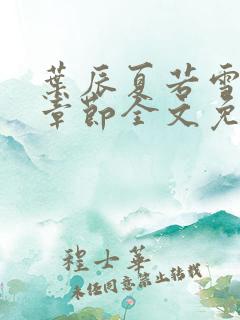 葉辰夏若雪
章節全文免
程士華
未經同意禁止轉載